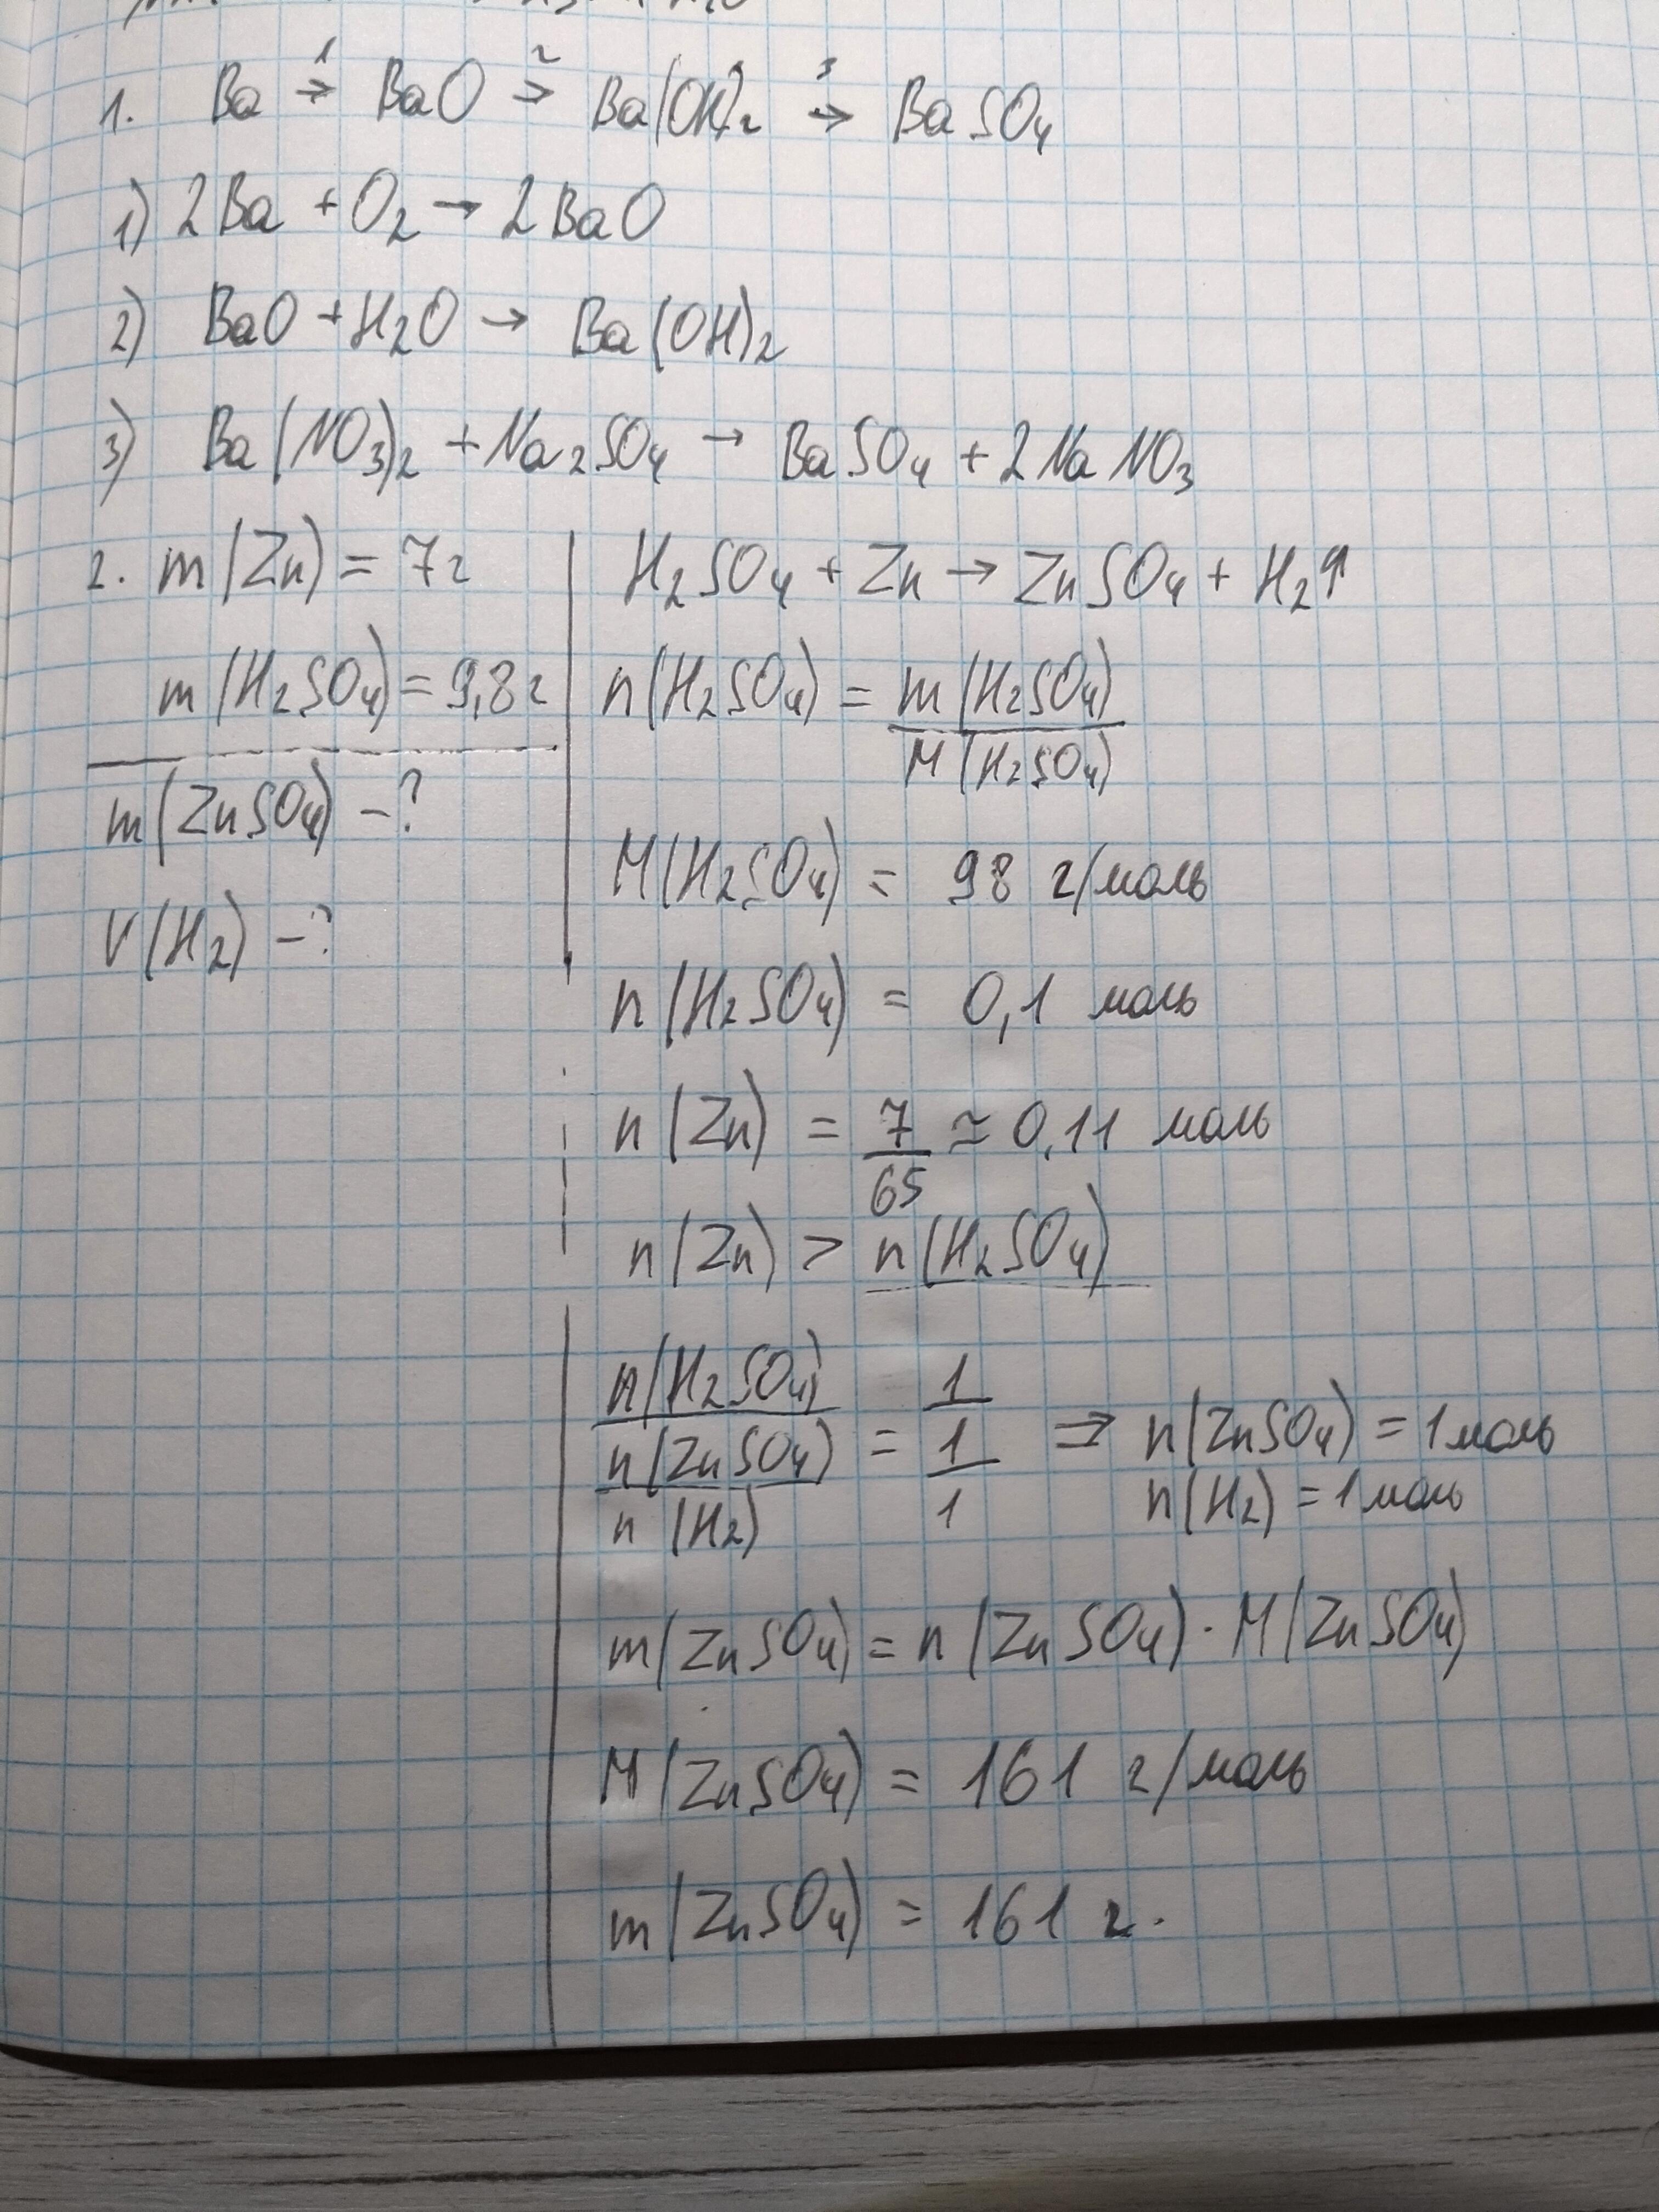 1. Ba →¹ BaO →² Ba(OH)₂ →³ BaSO₄
1) 2Ba + O₂ → 2BaO
2) BaO + H₂O → Ba(OH)₂
3) Ba(NO₃)₂ + Na₂SO₄ → BaSO₄ + 2NaNO₃
2. m(Zn) = 7г
m(H₂SO₄) = 9,8г
m(ZnSO₄) - ?
V(H₂) - ?
H₂SO₄ + Zn → ZnSO₄ + H₂↑
n(H₂SO₄) = m(H₂SO₄) / M(H₂SO₄)
M(H₂SO₄) = 98 г/моль
n(H₂SO₄) = 0,1 моль
n(Zn) = 7/65 ≃ 0,11 моль
n(Zn) > n(H₂SO₄)
n(H₂SO₄) / n(ZnSO₄) / n(H₂) = 1/1/1 ⇒ n(ZnSO₄) = 1моль
n(H₂) = 1моль
m(ZnSO₄) = n(ZnSO₄) · M(ZnSO₄)
M(ZnSO₄) = 161 г/моль
m(ZnSO₄) = 161 г.